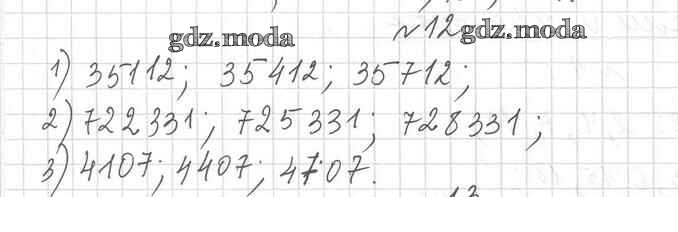 №12
gdz.moda gdz.moda
1) 35112; 35412; 35712;
2) 722331; 725331; 728331;
3) 4107; 4407; 4707.
13